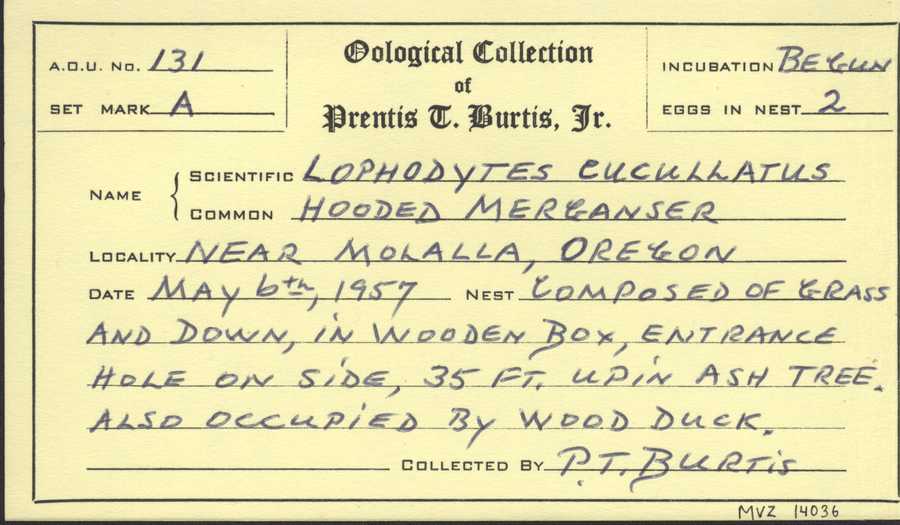 A.O.U. No. 131
SET MARK A
Oological Collection
of
Prentis T. Burtis, Jr.
INCUBATION BEGUN
EGGS IN NEST 2
NAME
SCIENTIFIC LOPHODYTES CUCULLATUS
COMMON HOODED MERGANSER
LOCALITY NEAR MOLALLA, OREGON
DATE MAY 6th, 1957 NEST COMPOSED OF GRASS
AND DOWN, IN WOODEN BOX, ENTRANCE
HOLE ON SIDE, 35 FT. UP IN ASH TREE.
ALSO OCCUPIED BY WOOD DUCK.
COLLECTED BY P.T. BURTIS
MVZ 14036